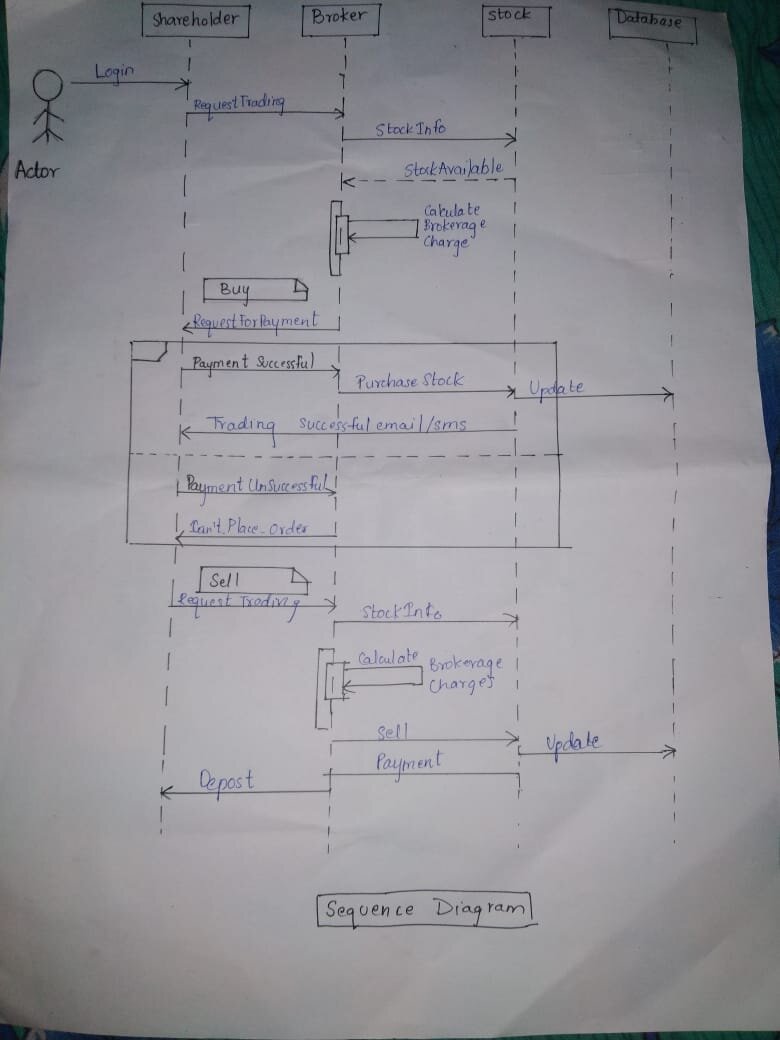 Shareholder
Broker
Stock
Database
Login
Request Trading
Stock Info
Stock Available
Actor
Calculate
Brokerage
Charge
Buy
Request For Payment
Payment Successful
Purchase Stock
Update
Trading Successful email/sms
Payment UnSuccessful
Can't Place Order
Sell
Request Trading
Stock Info
Calculate
Brokerage
Charges
Sell
Update
Payment
Depost
Sequence Diagram